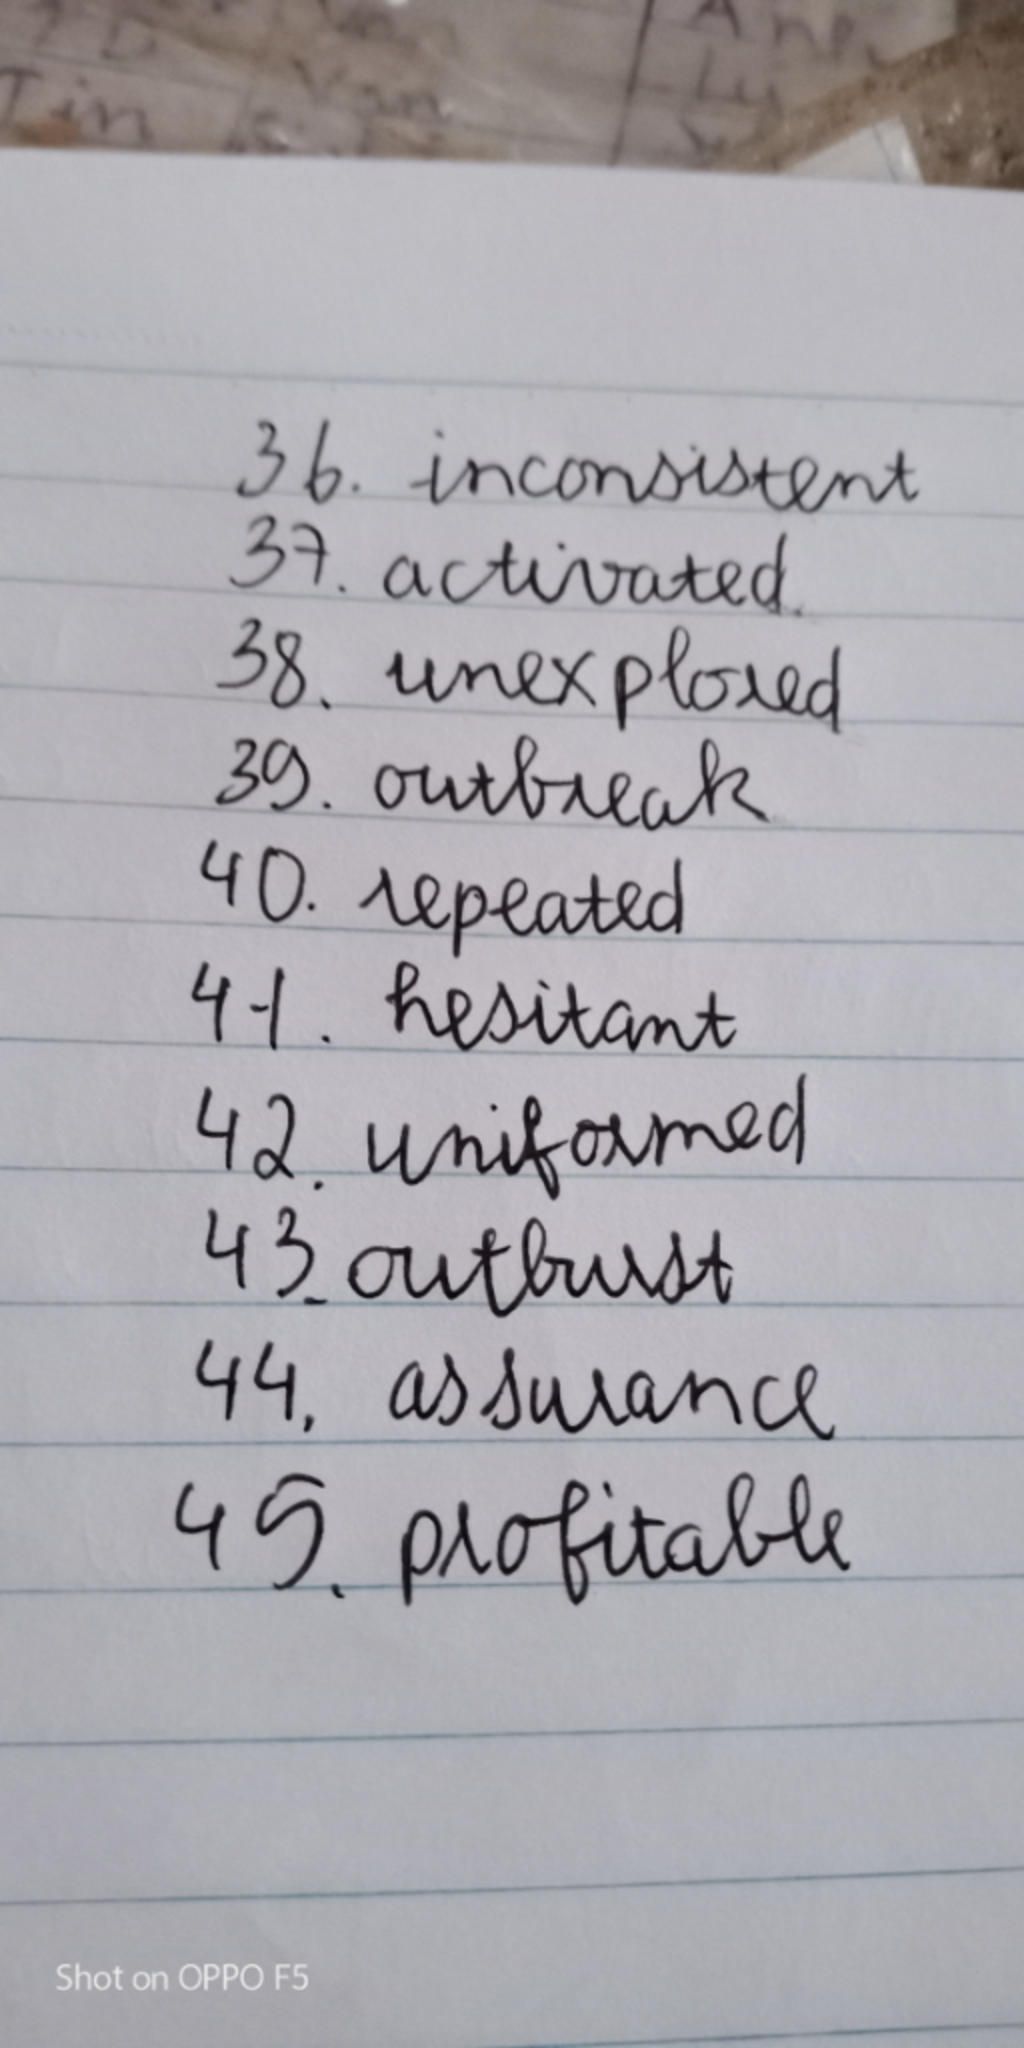 36. inconsistent
37. activated.
38. unexplored
39. outbreak
40. repeated
41. hesitant
42. uniformed
43. outburst
44. assurance
45. profitable
Shot on OPPO F5